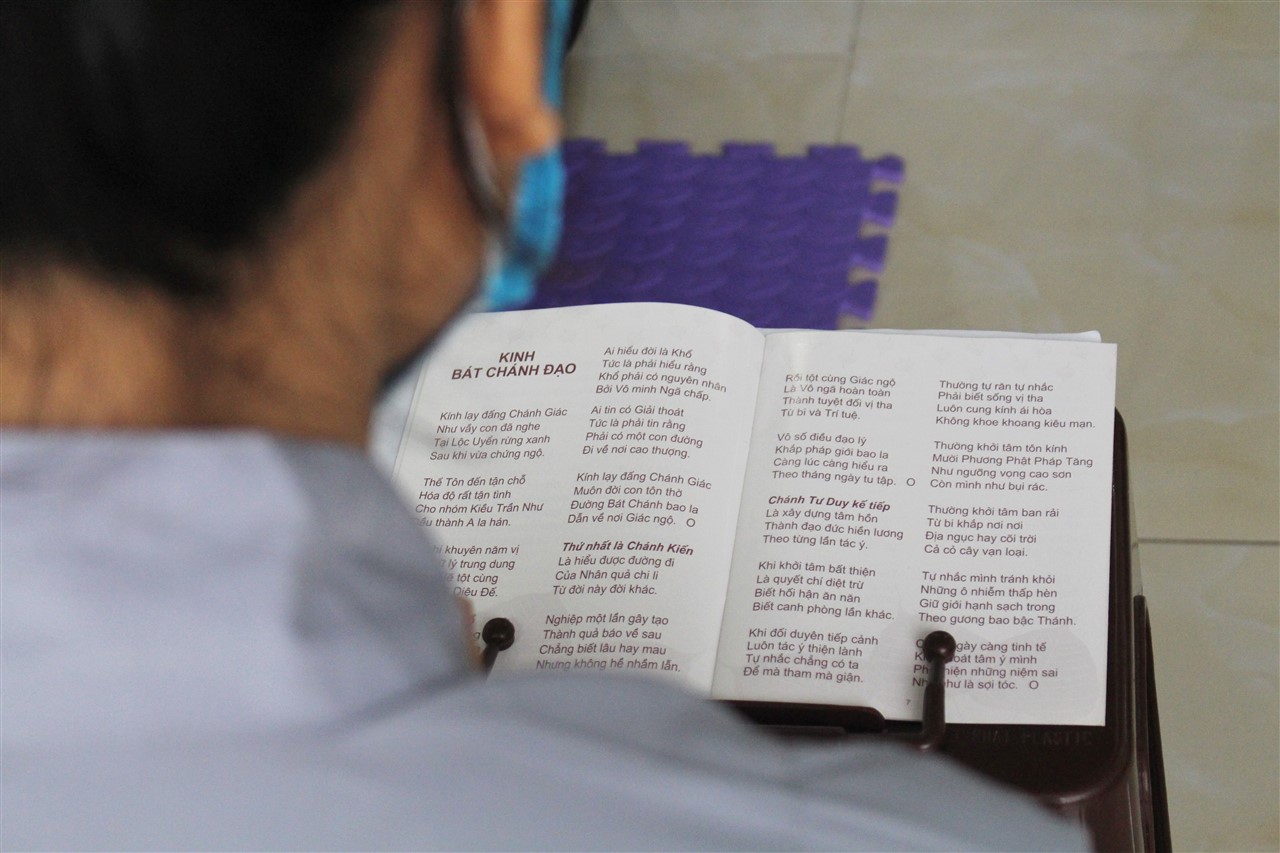 KINH
BÁT CHÁNH ĐẠO
Kính lạy đấng Chánh Giác
Như vầy con đã nghe
Tại Lộc Uyển rừng xanh
Sau khi vừa chứng ngộ.
Thế Tôn đến tận chỗ
Hóa độ rất tận tình
Cho nhóm Kiều Trần Như
thành A la hán.
khuyên năm vị
lý trung dung
tột cùng
Diệu Đế.
Ai hiểu đời là Khổ
Tức là phải hiểu rằng
Khổ phải có nguyên nhân
Bởi Vô minh Ngã chấp.
Ai tin có Giải thoát
Tức là phải tin rằng
Phải có một con đường
Đi về nơi cao thượng.
Kính lạy đấng Chánh Giác
Muôn đời con tôn thờ
Đường Bát Chánh bao la
Dẫn về nơi Giác ngộ. O
Thứ nhất là Chánh Kiến
Là hiểu được đường đi
Của Nhân quả chi li
Từ đời này đời khác.
Nghiệp một lần gây tạo
Thành quả báo về sau
Chẳng biết lâu hay mau
Nhưng không hề nhầm lẫn.
Rồi tột cùng Giác ngộ
Là Vô ngã hoàn toàn
Thành tuyệt đối vị tha
Từ bi và Trí tuệ.
Vô số điều đạo lý
Khắp pháp giới bao la
Càng lúc càng hiểu ra
Theo tháng ngày tu tập. O
Chánh Tư Duy kế tiếp
Là xây dựng tâm hồn
Thành đạo đức hiền lương
Theo từng lần tác ý.
Khi khởi tâm bất thiện
Là quyết chí diệt trừ
Biết hối hận ăn năn
Biết canh phòng lần khác.
Khi đối duyên tiếp cảnh
Luôn tác ý thiện lành
Tự nhắc chẳng có ta
Để mà tham mà giận.
7
Thường tự răn tự nhắc
Phải biết sống vị tha
Luôn cung kính ái hòa
Không khoe khoang kiêu mạn.
Thường khởi tâm tôn kính
Mười Phương Phật Pháp Tăng
Như ngưỡng vọng cao sơn
Còn mình như bụi rác.
Thường khởi tâm ban rải
Từ bi khắp nơi nơi
Địa ngục hay cõi trời
Cả cỏ cây vạn loại.
Tự nhắc mình tránh khỏi
Những ô nhiễm thấp hèn
Giữ giới hạnh sạch trong
Theo gương bao bậc Thánh.
ngày càng tinh tế
soát tâm ý mình
hiện những niệm sai
như là sợi tóc. O